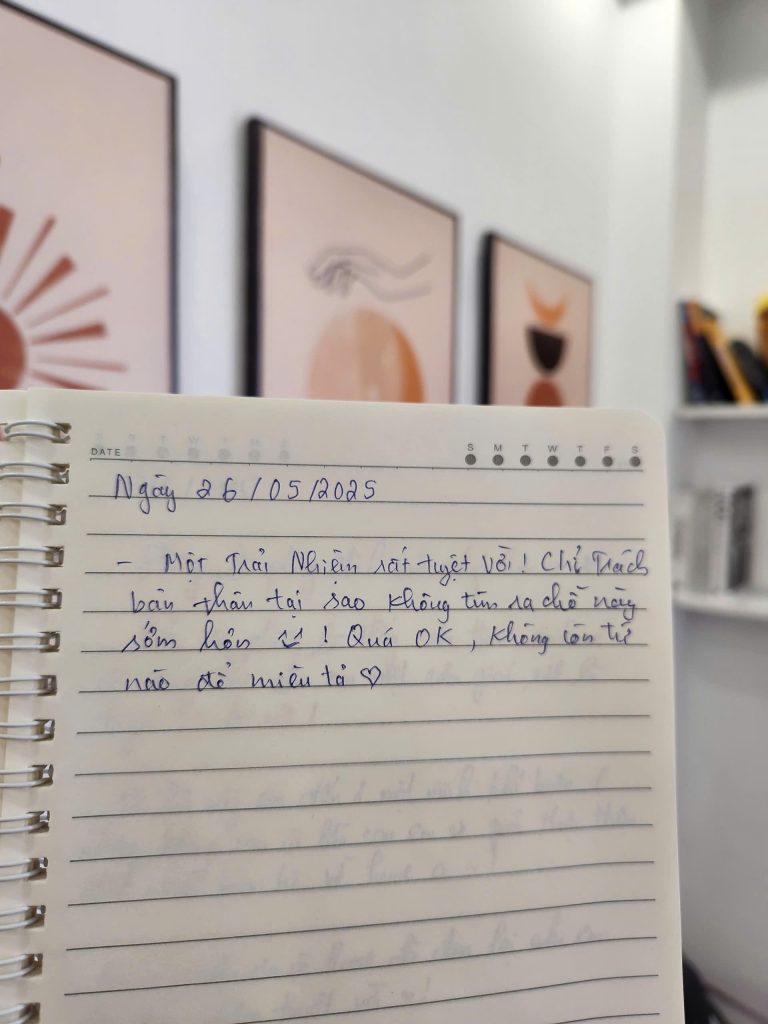 DATE
S M T W T F S
Ngày 26/05/2025
- Một Trải Nhiệm rất tuyệt vời! Chỉ Trách
bản thân tại sao không tìm ra chỗ này
sớm hơn ! Quá OK, không còn từ
nào để miêu tả ♡